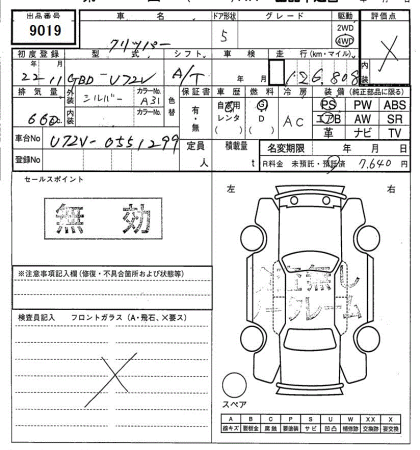 出品番号
9019
車 名
クリッパー
ドア形状
5
グレード
駆動
2WD
4WD
評価点
初度登録
型 式
シフト
車 検
走 行 (km・マイル)
22年11月
GBD-U72V
A/T
年 月
126,808
排 気 量
660
外装
シルバー
カラーNo.
A31
内装
カラーNo.
色替
保証書
有・無
車 歴
自家用
レンタ
( )
燃 料
G
D
( )
冷 房
AC
装 備 (純正部品に限る)
PS PW ABS
エアB AW SR
革 ナビ TV
車台No
U72V-0551299
登録No
定員
人
積載量
t
名変期限
年 月 日
R料金 未預託・預託済 7,640 円
セールスポイント
無 効
※注意事項記入欄 (修復・不具合箇所および状態等)
検査員記入 フロントガラス (A・飛石、X要ス)
左 右
無し
クレーム
スペア
A B C P S U W XX X
線キズ 腐蝕 要塗装 サビ 凹凸 補修跡 交換跡 要交換